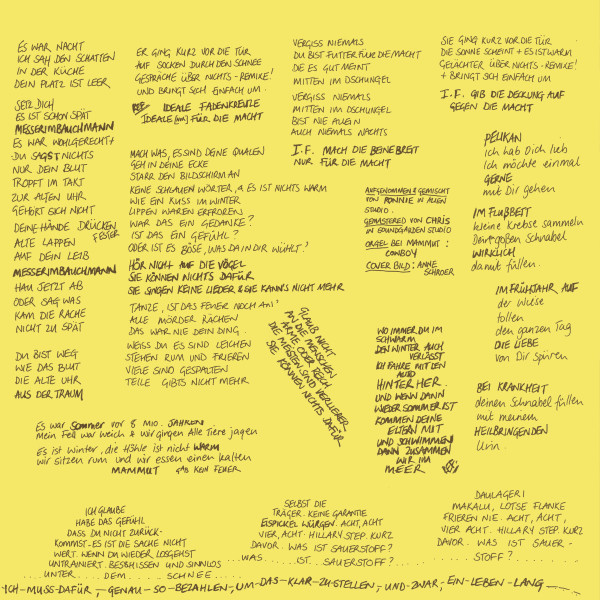 ES WAR NACHT
ICH SAH DEN SCHATTEN
IN DER KÜCHE
DEIN PLATZ IST LEER
SETZ DICH
ES IST SCHON SPÄT
MESSERIMBAUCHMANN
ES WAR WOHLGERECHT
DU SAGST NICHTS
NUR DEIN BLUT
TROPFT IM TAKT
ZUR ALTEN UHR
GEHÖRT SICH NICHT
DEINE HÄNDE DRÜCKEN
FESTER
ALTE LAPPEN
AUF DEIN LEIB
MESSERIMBAUCHMANN
HAU JETZT AB
ODER SAG WAS
KAM DIE RACHE
NICHT ZU SPÄT
DU BIST WEG
WIE DAS BLUT
DIE ALTE UHR
AUS DER TRAUM
ER GING KURZ VOR DIE TÜR
AUF SOCKEN DURCH DEN SCHNEE
GESPRÄCHE ÜBER NICHTS - REMIXE!
UND BRINGT SICH EINFACH UM.
REF IDEALE FADENKREUZE
IDEALE FÜR DIE MACHT
MACH WAS, ES SIND DEINE QUALEN
GEH IN DEINE ECKE
STARR DEN BILDSCHIRM AN
KEINE SCHLAUEN WÖRTER, ES IST NICHTS WARM
WIE EIN KUSS IM WINTER
LIPPEN WAREN ERFROREN
WAR DAS EIN GEDANKE?
IST DAS EIN GEFÜHL?
ODER IST ES BÖSE, WAS DA IN DIR WÜHLT?
HÖR NICHT AUF DIE VÖGEL
SIE KÖNNEN NICHTS DAFÜR
SIE SINGEN KEINE LIEDER & SIE KANN'S NICHT MEHR
TANZE, IST DAS FEUER NOCH AN?
ALLE MÖRDER RÄCHEN
DAS WAR NIE DEIN DING.
WEISS DU ES SIND LEICHEN
STEHEN RUM UND FRIEREN
VIELE SIND GESPALTEN
TEILE GIBTS NICHT MEHR
VERGISS NIEMALS
DU BIST FUTTER FÜR DIE MACHT
DIE ES GUT MEINT
MITTEN IM DSCHUNGEL
VERGISS NIEMALS
MITTEN IM DSCHUNGEL
BIST NIE ALLEIN
AUCH NIEMALS NACHTS
I.F. MACH DIE BEINE BREIT
NUR FÜR DIE MACHT
SIE GING KURZ VOR DIE TÜR
DIE SONNE SCHEINT + ES IST WARM
GELÄCHTER ÜBER NICHTS - REMIXE!
+ BRINGT SICH EINFACH UM
I.F. GIB DIE DECKUNG AUF
GEGEN DIE MACHT
AUFGENOMMEN & GEMISCHT
VON RONNIE IN ALIEN
STUDIO.
GEMASTERED VON CHRIS
IN SOUNDGARDEN STUDIO
ORGEL BEI MAMMUT:
COWBOY
COVER BILD: ANNE
SCHROER
PELIKAN
ich hab Dich lieb
ich möchte einmal
GERNE
mit Dir gehen
IM FLUßBETT
kleine Krebse sammeln
Dein großen Schnabel
WIRKLICH
damit füllen.
IM FRÜHJAHR AUF
der Wiese
tollen
den ganzen Tag
DIE LIEBE
von Dir spüren
BEI KRANKHEIT
deinen Schnabel füllen
mit meinem
HEILBRINGENDEN
Urin.
GLAUB NICHT
AN DIE MENSCHEN
ARME ODER REICH
DIE MEISTEN SIND VERLIERER
SIE KÖNNEN NICHTS DAFÜR
WO IMMER DU IM
SCHWARM
DEN WINTER AUCH
VERLÄSST
ICH FAHRE MIT DEN
AUTO
HINTERHER.
UND WENN DANN
WIEDER SOMMER IST
KOMMEN DEINE
ELTERN MIT
UND SCHWIMMEN
DANN ZUSAMMEN
WIR IM
MEER
Es war Sommer vor 8 MIO. JAHREN
mein Fell war weich & wir gingen Alle Tiere jagen
Es ist Winter, die Höhle ist nicht WARM
wir sitzen rum und wir essen einen kalten
MAMMUT GAB KEIN FEUER
ICH GLAUBE
HABE DAS GEFÜHL
DASS DU NICHT ZURÜCK-
KOMMST - ES IST DIE SACHE NICHT
WERT. WENN DU WIEDER LOSGEHST
UNTRAINIERT. BESOHISSEN UND SINNLOS
....UNTER....DEM....SCHNEE....
SELBST DIE
TRÄGER. KEINE GARANTIE
EISPICKEL WÜRGEN. ACHT, ACHT
VIER, ACHT. HILLARY STEP. KURZ
DAVOR. WAS IST SAUERSTOFF?
....WAS......IST...SAUERSTOFF?....
DAULAGERI
MAKALU, LOTSE FLANKE
FRIEREN NIE. ACHT, ACHT,
VIER ACHT. HILLARY STEP. KURZ
DAVOR. WAS IST SAUER-
STOFF?........
ICH-MUSS-DAFÜR,-GENAU-SO-BEZAHLEN,-UM-DAS-KLAR-ZU-STELLEN,-UND-ZWAR,-EIN-LEBEN-LANG